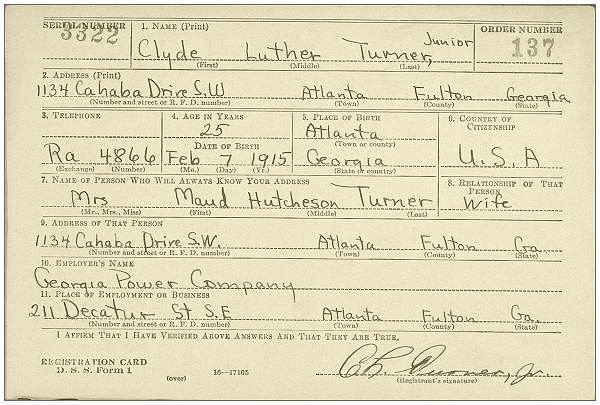 SERIAL NUMBER 1. NAME (Print) ORDER NUMBER
3322 Clyde Luther Turner, Junior 137
(First) (Middle) (Last)
2. ADDRESS (Print)
1134 Cahaba Drive S.W Atlanta Fulton Georgia
(Number and street or R. F. D. number) (Town) (County) (State)
3. TELEPHONE 4. AGE IN YEARS 5. PLACE OF BIRTH 6. COUNTRY OF CITIZENSHIP
25 Atlanta
DATE OF BIRTH (Town or county)
Ra 4866 Feb 7 1915 Georgia U.S.A
(Exchange) (Number) (Mo.) (Day) (Yr.) (State or country)
7. NAME OF PERSON WHO WILL ALWAYS KNOW YOUR ADDRESS 8. RELATIONSHIP OF THAT PERSON
Mrs Maud Hutcheson Turner Wife
(Mr., Mrs., Miss) (First) (Middle) (Last)
9. ADDRESS OF THAT PERSON
1134 Cahaba Drive S.W. Atlanta Fulton Ga.
(Number and street or R. F. D. number) (Town) (County) (State)
10. EMPLOYER'S NAME
Georgia Power Company
11. PLACE OF EMPLOYMENT OR BUSINESS
211 Decatur St S.E Atlanta Fulton Ga.
(Number and street or R. F. D. number) (Town) (County) (State)
I AFFIRM THAT I HAVE VERIFIED ABOVE ANSWERS AND THAT THEY ARE TRUE.
REGISTRATION CARD
D. S. S. Form 1 (over) 16—17105 C.L. Turner, Jr.
(Registrant's signature)